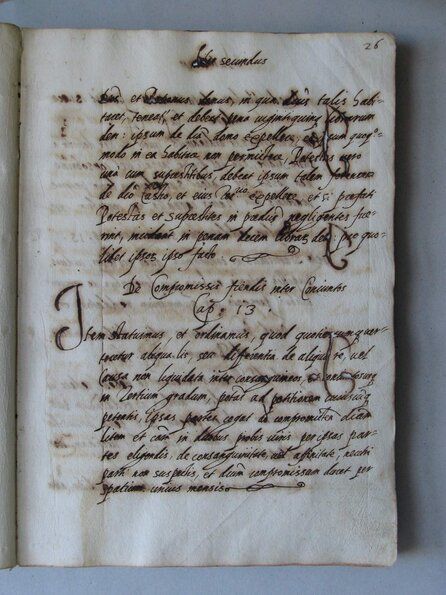 26
Liber secundus
et Patronus domus, in qua talis habi-
taret, teneat, et debeat pena vigintiquinq; librarum
den: ipsum de dicta domo expellere, et eum quoq;
modo in ea habitare non permittere, Potestas vero
una cum superstitibus, debeat ipsum talem
de dicto Castro, et eius expellere et si prefati
Potestas et superstites in predictis negligentes fue-
rint, incidant in penam decem librar. den: pro quo-
libet ipsor. ipso facto.
De Compromissis fiendis inter Coniunctos
Cap. 13.
Item statuimus, et ordinamus, quod quotiescunque ver-
tretur aliqua lis seu differentia de aliqua re, vel
causa non liquidata inter consanguineos, et
in tertium gradum, potestas ad petitionem cuiuscumq;
petentis, ipsas partes cogat ad compromittendum dictam
litem et causam in duobus probis viris per ipsas par-
tes eligendis, de consanguinitate, vel affinitate, neutri
parti non suspectis, et dictum compromissum duret per
spatium unius mensis.